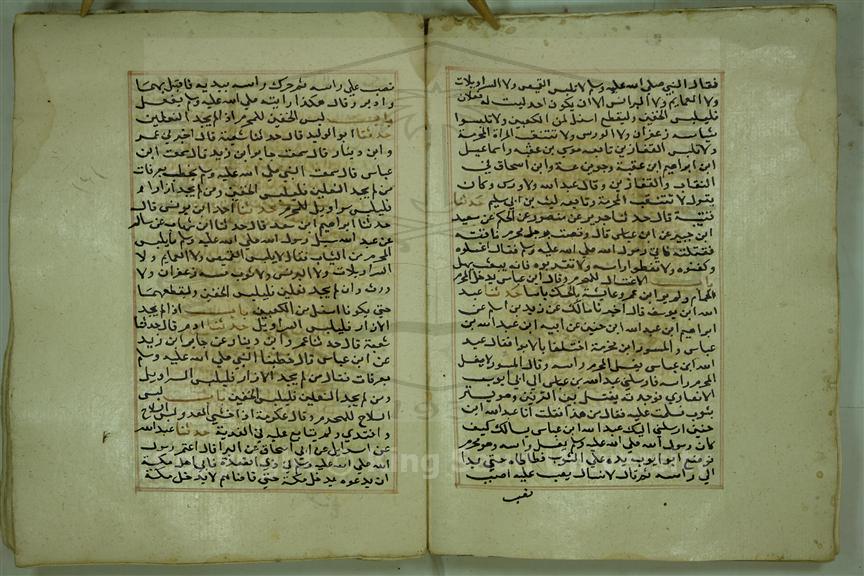 فقال النبي صلى الله عليه وسلم لا تلبس القميص ولا السراويلات
ولا العمايم ولا البرانس الا ان يكون احد ليست له نعلان
فليلبس الخفين وليقطع اسفل من الكعبين ولا تلبسوا
شيا مسه زعفران ولا الورس ولا تنتقب المرأة المحرمة
ولا تلبس القفازين تابعه موسى بن عقبة واسماعيل
ابن ابراهيم ابن عقبة وجويرية وابن اسحاق في
النقاب والقفازين وقال عبد الله ولا ورس وكان
يقول لا تنتقب المحرمة وتابعه ليث بن ابي سليم حدثنا
قتيبة قال حدثنا جرير عن منصور عن الحكم عن سعيد
ابن جبير عن ابن عباس قال وقصت برجل محرم ناقته
فقتلته فاتي رسول الله صلى الله عليه وسلم فقال اغسلوه
وكفنوه ولا تغطوا راسه ولا تقربوه فانه يبعث يهل
باب الاغتسال للمحرم وقال ابن عباس يدخل المحرم
الحمام ولم ير ابن عمر وعائشة بالحك باسا حدثنا عبد
الله ابن يوسف قال اخبرنا مالك عن زيد بن اسلم عن
ابراهيم ابن عبد الله ابن حنين عن ابيه ان عبد الله بن
عباس والمسور ابن مخرمة اختلفا بالابوا فقال عبد
الله ابن عباس يغسل المحرم راسه وقال المسور لا يغسل
المحرم راسه فارسلني عبد الله بن عباس الى ابي ايوب
الانصاري فوجدته يغتسل بين القرنين وهو يستر
بثوب فسلمت عليه فقال من هذا فقلت انا عبد الله ابن
حنين ارسلني اليك عبد الله ابن عباس يسالك كيف
كان رسول الله صلى الله عليه وسلم يغسل راسه وهو محرم
فوضع ابو ايوب يده على الثوب فطاطاه حتى بدا
لي راسه ثم قال لانسان يصب عليه اصبب
فصب
فصب على راسه ثم حرك راسه بيديه فاقبل بهما
وادبر وقال هكذا رايته صلى الله عليه وسلم يفعل
باب لبس الخفين للمحرم اذا لم يجد النعلين
حدثنا ابو الوليد قال حدثنا شعبة قال اخبرني عمر
وابن دينار قال سمعت جابر ابن زيد قال سمعت ابن
عباس قال سمعت النبي صلى الله عليه وسلم يخطب بعرفات
من لم يجد النعلين فليلبس الخفين ومن لم يجد ازارا
فليلبس سراويل للمحرم حدثنا احمد ابن يونس قال
حدثنا ابراهيم ابن سعد قال حدثنا ابن شهاب عن سالم
عن عبد الله سيل رسول الله صلى الله عليه وسلم ما يلبس
المحرم من الثياب فقال لا يلبس القميص ولا العمايم ولا
السراويلات ولا البرنس ولا ثوب مسه زعفران ولا
ورث وان لم يجد نعلين فليلبس الخفين وليقطعهما
حتى يكونا اسفل من الكعبين باب اذا لم يجد
الازار فليلبس السراويل حدثنا ادم قال حدثنا
شعبة قال حدثنا عمرو ابن دينار عن جابر ابن زيد
عن ابن عباس قال خطبنا النبي صلى الله عليه وسلم
بعرفات فقال من لم يجد الازار فليلبس السراويل
ومن لم يجد النعلين فليلبس الخفين باب لبس
السلاح للمحرم وقال عكرمة اذا خشي العدو لبس السلاح
وافتدى ولم يتابع عليه في الفدية حدثنا عبد الله
عن اسرائيل عن ابي اسحاق عن البرا قال اعتمر رسول
الله صلى الله عليه وسلم في ذي القعدة فابى اهل مكة
ان يدعوه يدخل مكة حتى قاضاهم لا يدخل مكة